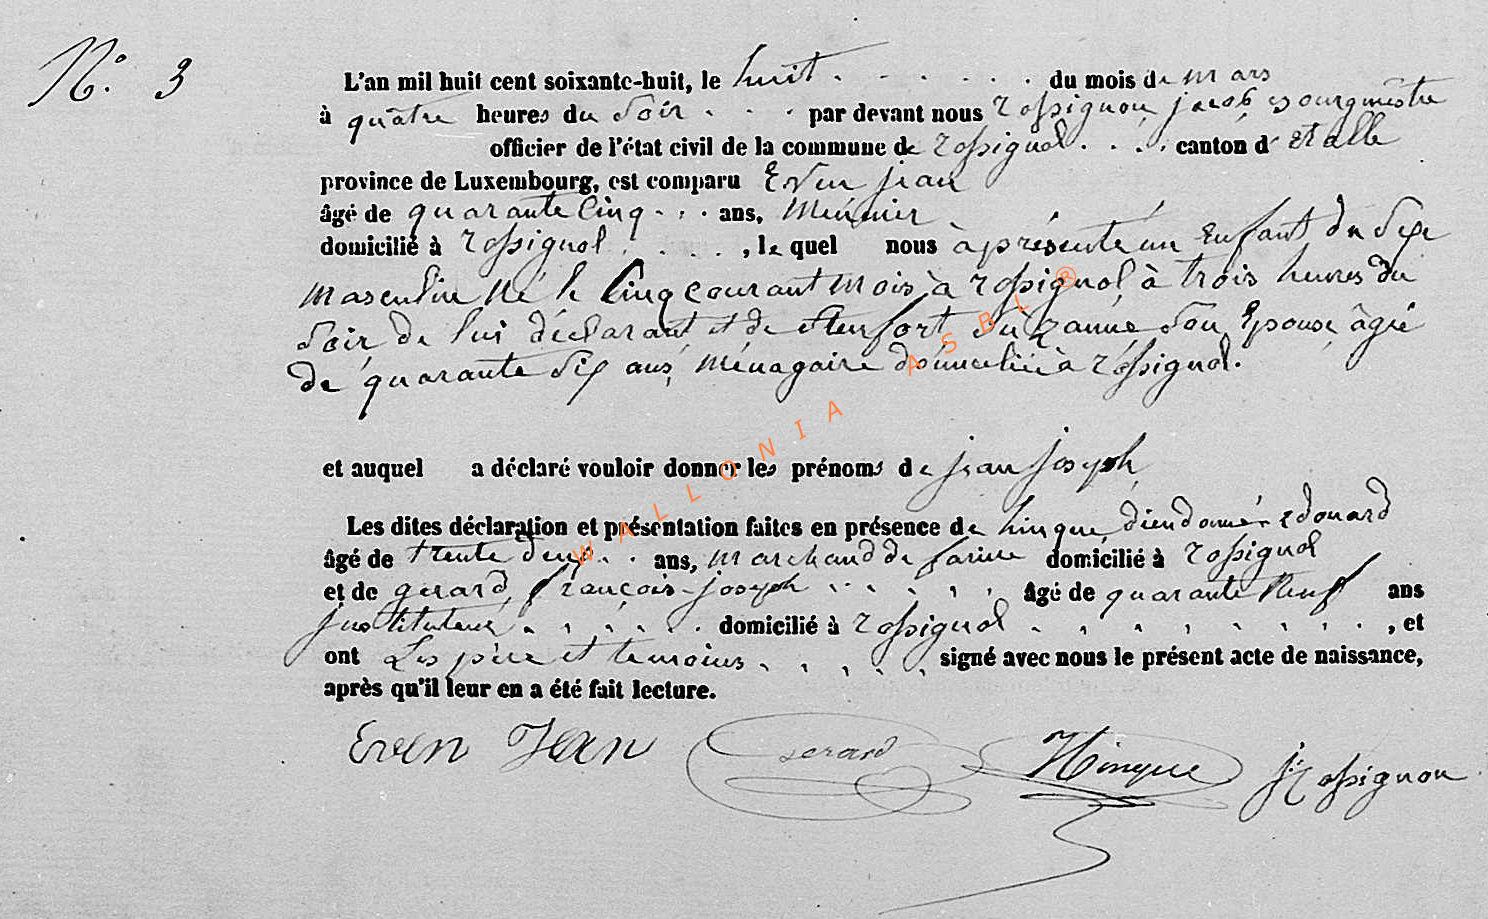 N.° 3
L'an mil huit cent soixante-huit, le huit . . . . . . du mois de mars
à quâtre heures du Soir . . . par devant nous rossignon jacob, Bourgmêstre
officier de l'état civil de la commune de rossignol . . . . canton d'etalle
province de Luxembourg, est comparu Even jean
âgé de quarante Cinq . . . ans, Meunier
domicilié à rossignol . . . . , le quel nous à présenté un Enfant du Sexe
masculin né le Cinq courant mois à rossignol à trois heures du
Soir de lui déclarant et de Suzanne Son Epouse, âgée
de quarante Six ans, ménagaire domiciliée à rossignol.
et auquel a déclaré vouloir donner les prénoms de jean joseph
Les dites déclaration et présentation faites en présence de hinque, dieudonné edouard
âgé de trente deux . . . ans, marchand de farine domicilié à rossignol
et de gerard, françois-joseph . . . . . . âgé de quarante Neuf ans
jnstituteur . . . . . . domicilié à rossignol . . . . . . . . , et
ont Les père et temoins . . . . . signé avec nous le présent acte de naissance,
après qu'il leur en a été fait lecture.
Even Jean Gerard Hinque J. rossignon
WALLONIA ASBL ®